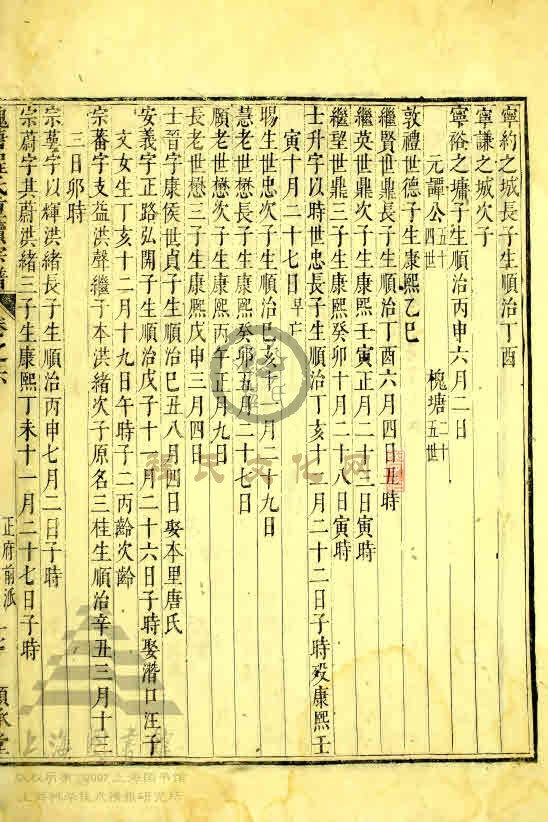 寧約之城長子生順治丁酉
寧謙之城次子
寧裕之墉子生順治丙申六月二日
元譚公五十四世 槐塘二十五世
敦禮世德子生康熙乙巳
繼賢世鼎長子生順治丁酉六月四日丑時
繼英世鼎次子生康熙壬寅正月二十三日寅時
繼聖世鼎三子生康熙癸卯十月二十八日寅時
士升字以時世忠長子生順治丁亥十一月二十二日子時歿康熙壬
寅十月二十七日早亡
賜生世忠次子生順治己亥十一月二十九日
慧老世懋長子生康熙癸卯五月二十七日
願老世懋次子生康熙丙午正月九日
長老世懋三子生康熙戊申三月四日
士晉字康侯世貞子生順治己丑八月四日娶本里唐氏
安義字正路弘開子生順治戊子十一月二十六日子時娶潛口汪子
文女生丁亥十二月十九日午時子二丙齡次齡
宗蕃字支益洪聲繼子本洪緒次子原名三桂生順治辛丑三月十三
三日卯時
宗蕚字以輝洪緒長子生順治丙申七月二日子時
宗蔚字其蔚洪緒三子生康熙丁未十一月二十七日子時
宗譜
卷之六
正府前派
順承堂
程氏文化网
上海图书馆
版权所有2007上海图书馆